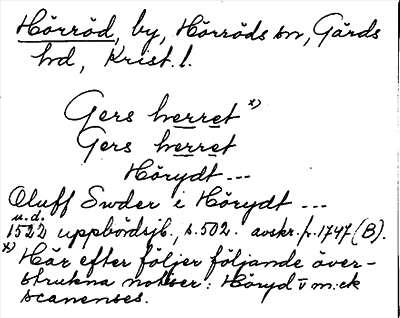 Hörröd, by, Hörröds sn, Gärds
hd, Krist. l.
Gers herret *)
Gers herret
Hörydt ---
Oluff Swder i Hörydt ---
u.d.
1522 uppbördsjb., s. 502. avskr. fr. 1747 (B).
*) Här efter följer följande över-
strukna notiser: Höryd
scanenses.